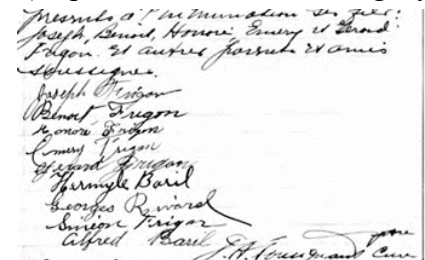 Présents à l'inhumation ses fils:
Joseph, Benoit, Honoré, Emery et Gerard
Frigon. Et autres parents et amis
soussignés.
Joseph Frigon
Benoit Frigon
Honoré Frigon
Emery Frigon
Gérard Frigon
Hermyle Baril
Georges Rivard
Siméon Frigon
Alfred Baril
ptre
Curé